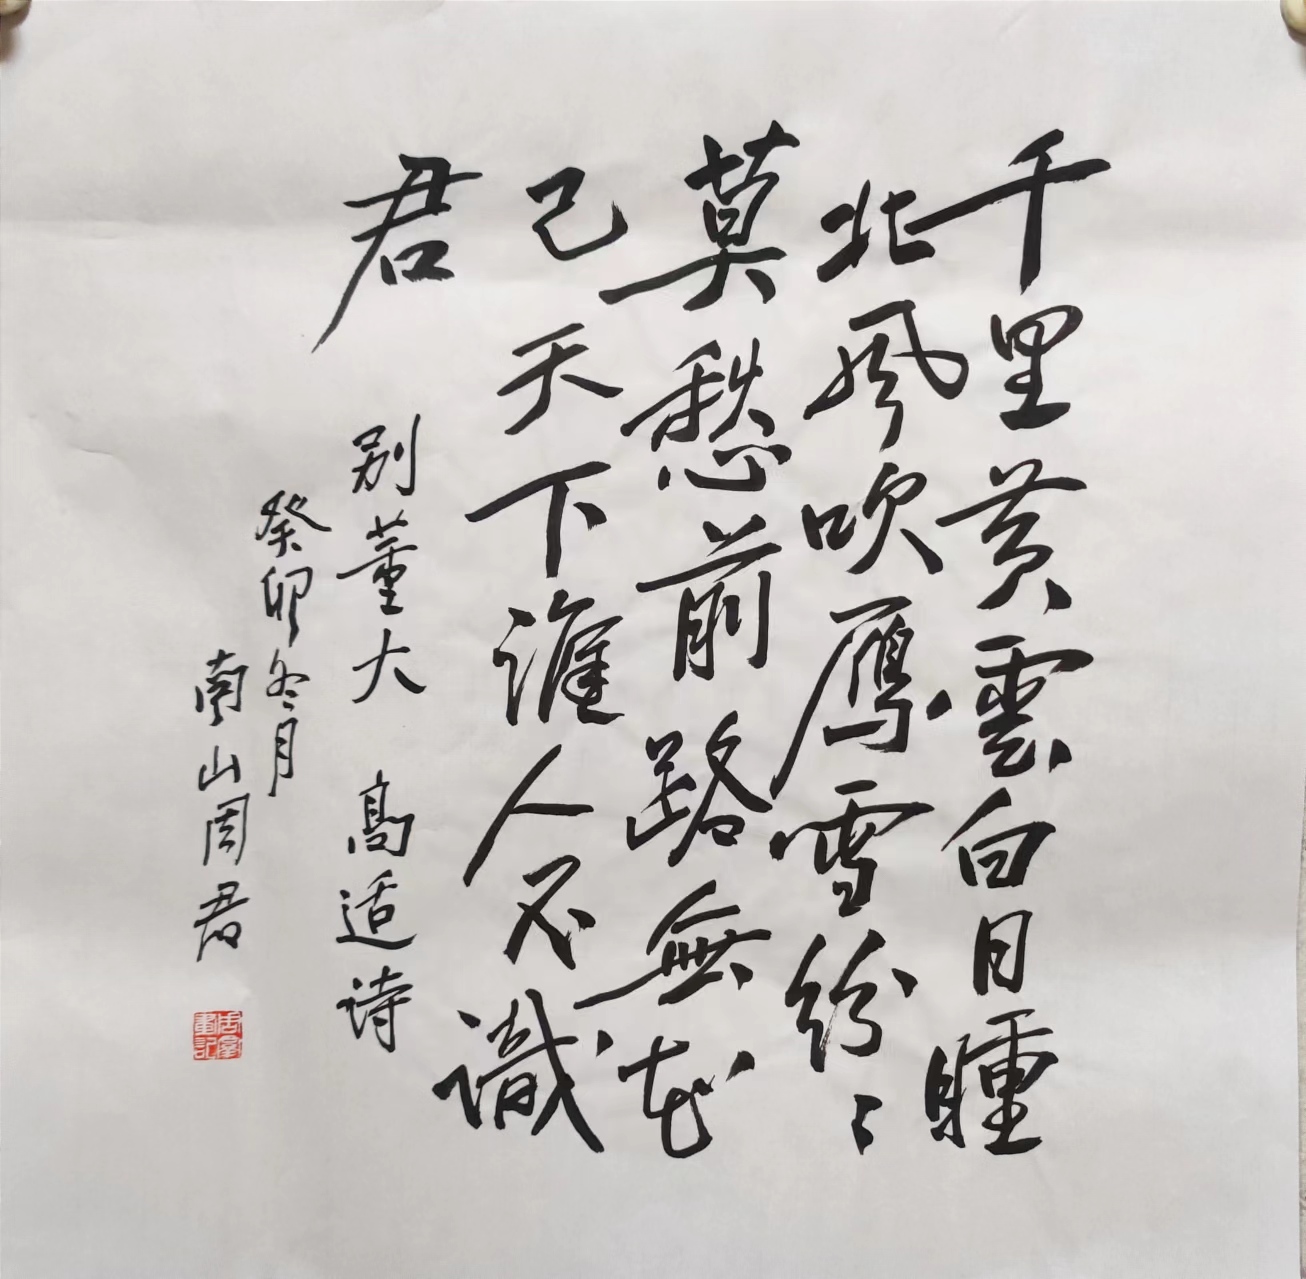 千里黄雲白日曛
北風吹鴈雪紛紛
莫愁前路無知
己天下誰人不識
君
别董大 高适诗
癸卯冬月
南山周君